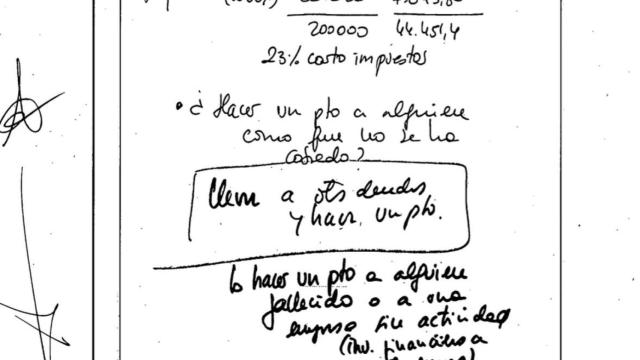 200000 44.451,4
23% costo impuestos
• ¿Hacer un pto a alguien
como que no se ha
cobrado?
Llevar a ots deudas
y hacer un pto.
↳ hacer un pto a alguien
fallecido o a una
empresa sin actividad
(inv. financiero a